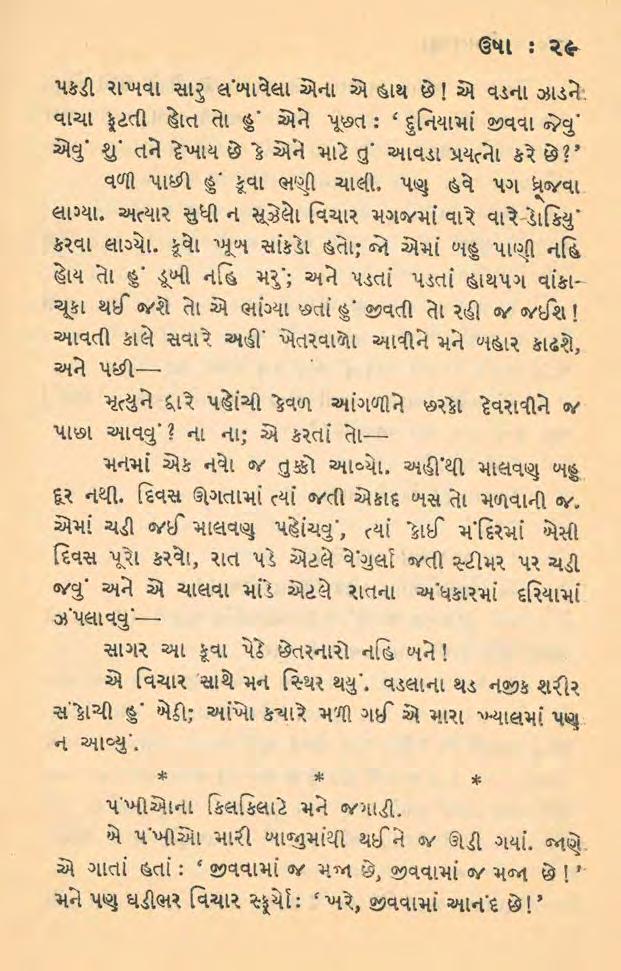 ઉષા : ૨૯
પકડી રાખવા સારુ લંબાવેલા એના એ હાથ છે! એ વડના ઝાડને
વાચા ફૂટતી હોત તો હું એને પૂછત : ‘ દુનિયામાં જીવવા જેવું
એવું શું તને દેખાય છે કે એને માટે તું આવડા પ્રયત્નો કરે છે?’
વળી પાછી હું કૂવા ભણી ચાલી. પણ હવે પગ ધ્રૂજવા
લાગ્યા. અત્યાર સુધી ન સૂઝેલો વિચાર મગજમાં વારે વારે ડોકિયું
કરવા લાગ્યો. કૂવો ખૂબ સાંકડો હતો; જો એમાં બહુ પાણી નહિ
હોય તો હું ડૂબી નહિ મરું; અને પડતાં પડતાં હાથપગ વાંકા-
ચૂકા થઈ જશે તો એ ભાંગ્યા છતાં હું જીવતી તો રહી જ જઈશ!
આવતી કાલે સવારે અહીં ખેતરવાળો આવીને મને બહાર કાઢશે,
અને પછી—
મૃત્યુને દ્વારે પહોંચી કેવળ આંગળીને છરકો દેવરાવીને જ
પાછા આવવું? ના ના; એ કરતાં તો—
મનમાં એક નવો જ તુક્કો આવ્યો. અહીંથી માલવણ બહુ
દૂર નથી. દિવસ ઊગતામાં ત્યાં જતી એકાદ બસ તો મળવાની જ.
એમાં ચડી જઈ માલવણ પહોંચવું, ત્યાં કોઈ મંદિરમાં બેસી
દિવસ પૂરો કરવો, રાત પડે એટલે વેંગુર્લા જતી સ્ટીમર પર ચડી
જવું અને એ ચાલવા માંડે એટલે રાતના અંધકારમાં દરિયામાં
ઝંપલાવવું—
સાગર આ કૂવા પેઠે છેતરનારો નહિ બને!
એ વિચાર સાથે મન સ્થિર થયું. વડલાના થડ નજીક શરીર
સંકોચી હું બેઠી; આંખો ક્યારે મળી ગઈ એ મારા ખ્યાલમાં પણ
ન આવ્યું.
* * *
પંખીઓના કિલકિલાટે મને જગાડી.
બે પંખીઓ મારી બાજુમાંથી થઈને જ ઊડી ગયાં. જાણે
એ ગાતાં હતાં : ‘ જીવવામાં જ મજા છે, જીવવામાં જ મજા છે!’
મને પણ ઘડીભર વિચાર સ્ફુર્યો: ‘ ખરે, જીવવામાં આનંદ છે!’